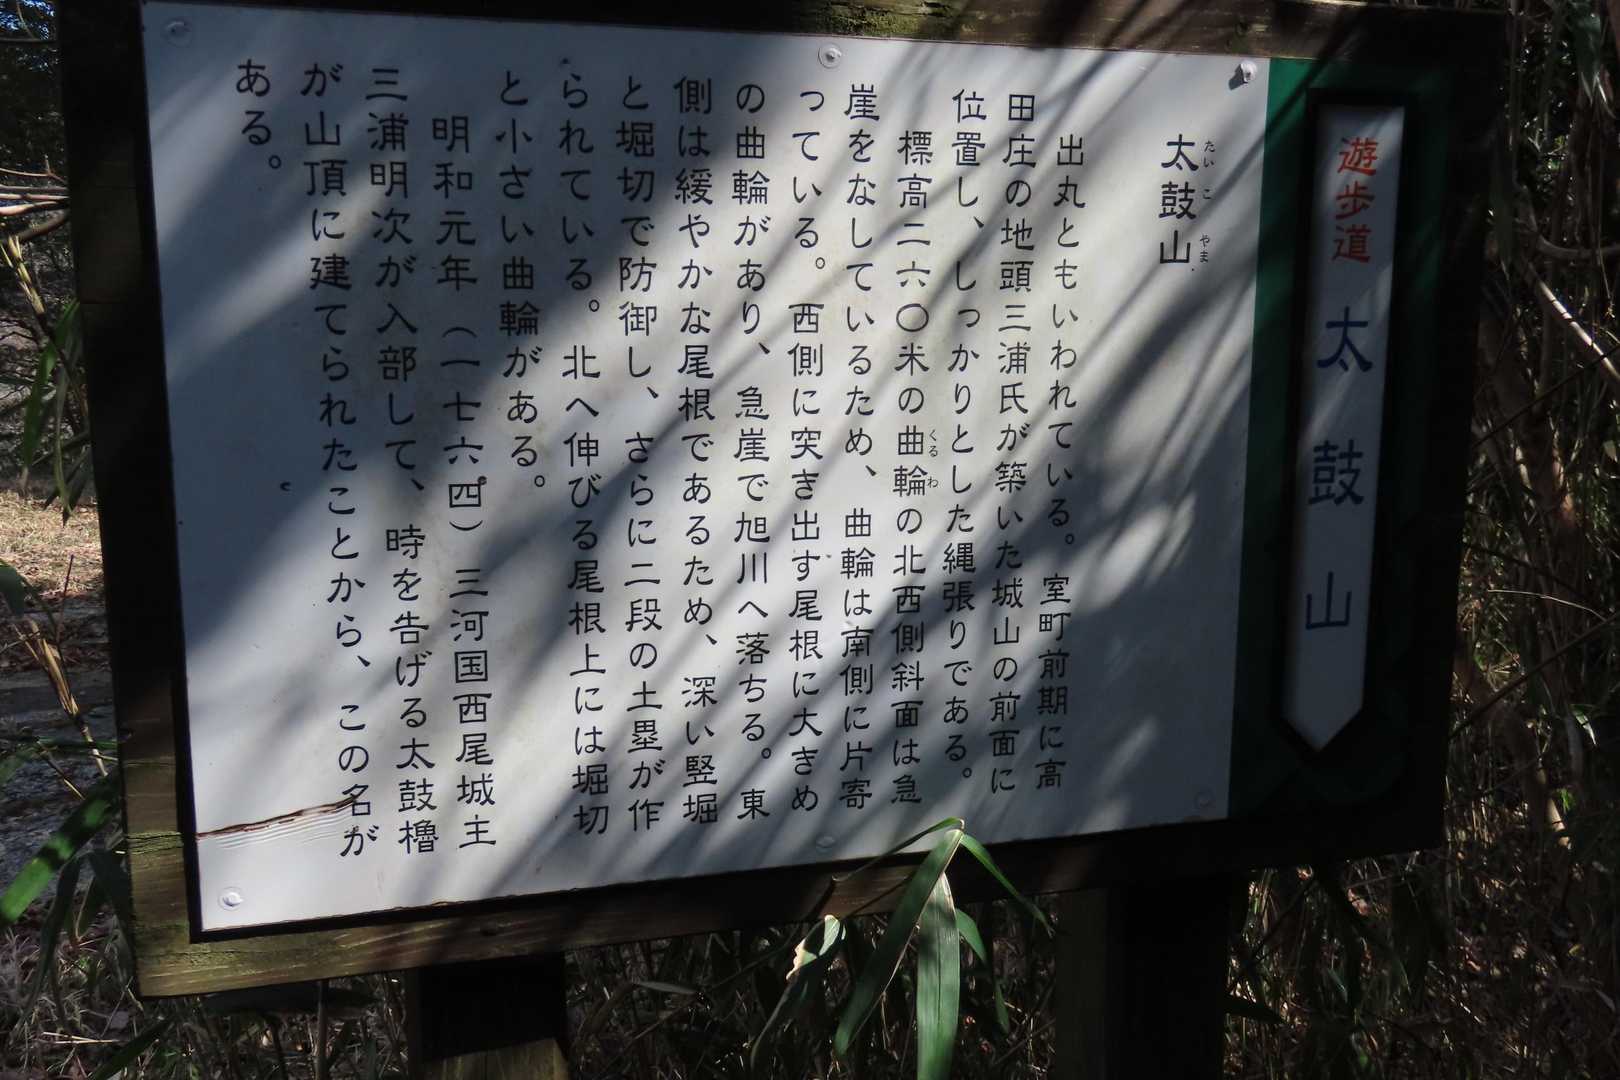 遊歩道 太鼓山
太鼓山
たいこやま
出丸ともいわれている。室町前期に高
田庄の地頭三浦氏が築いた城山の前面に
位置し、しっかりとした縄張りである。
標高二六〇米の曲輪の北西側斜面は急
くるわ
崖をなしているため、曲輪は南側に片寄
っている。西側に突き出す尾根に大きめ
の曲輪があり、急崖で旭川へ落ちる。東
側は緩やかな尾根であるため、深い竪堀
と堀切で防御し、さらに二段の土塁が作
られている。北へ伸びる尾根上には堀切
と小さい曲輪がある。
明和元年（一七六四）三河国西尾城主
三浦明次が入部して、時を告げる太鼓櫓
が山頂に建てられたことから、この名が
ある。